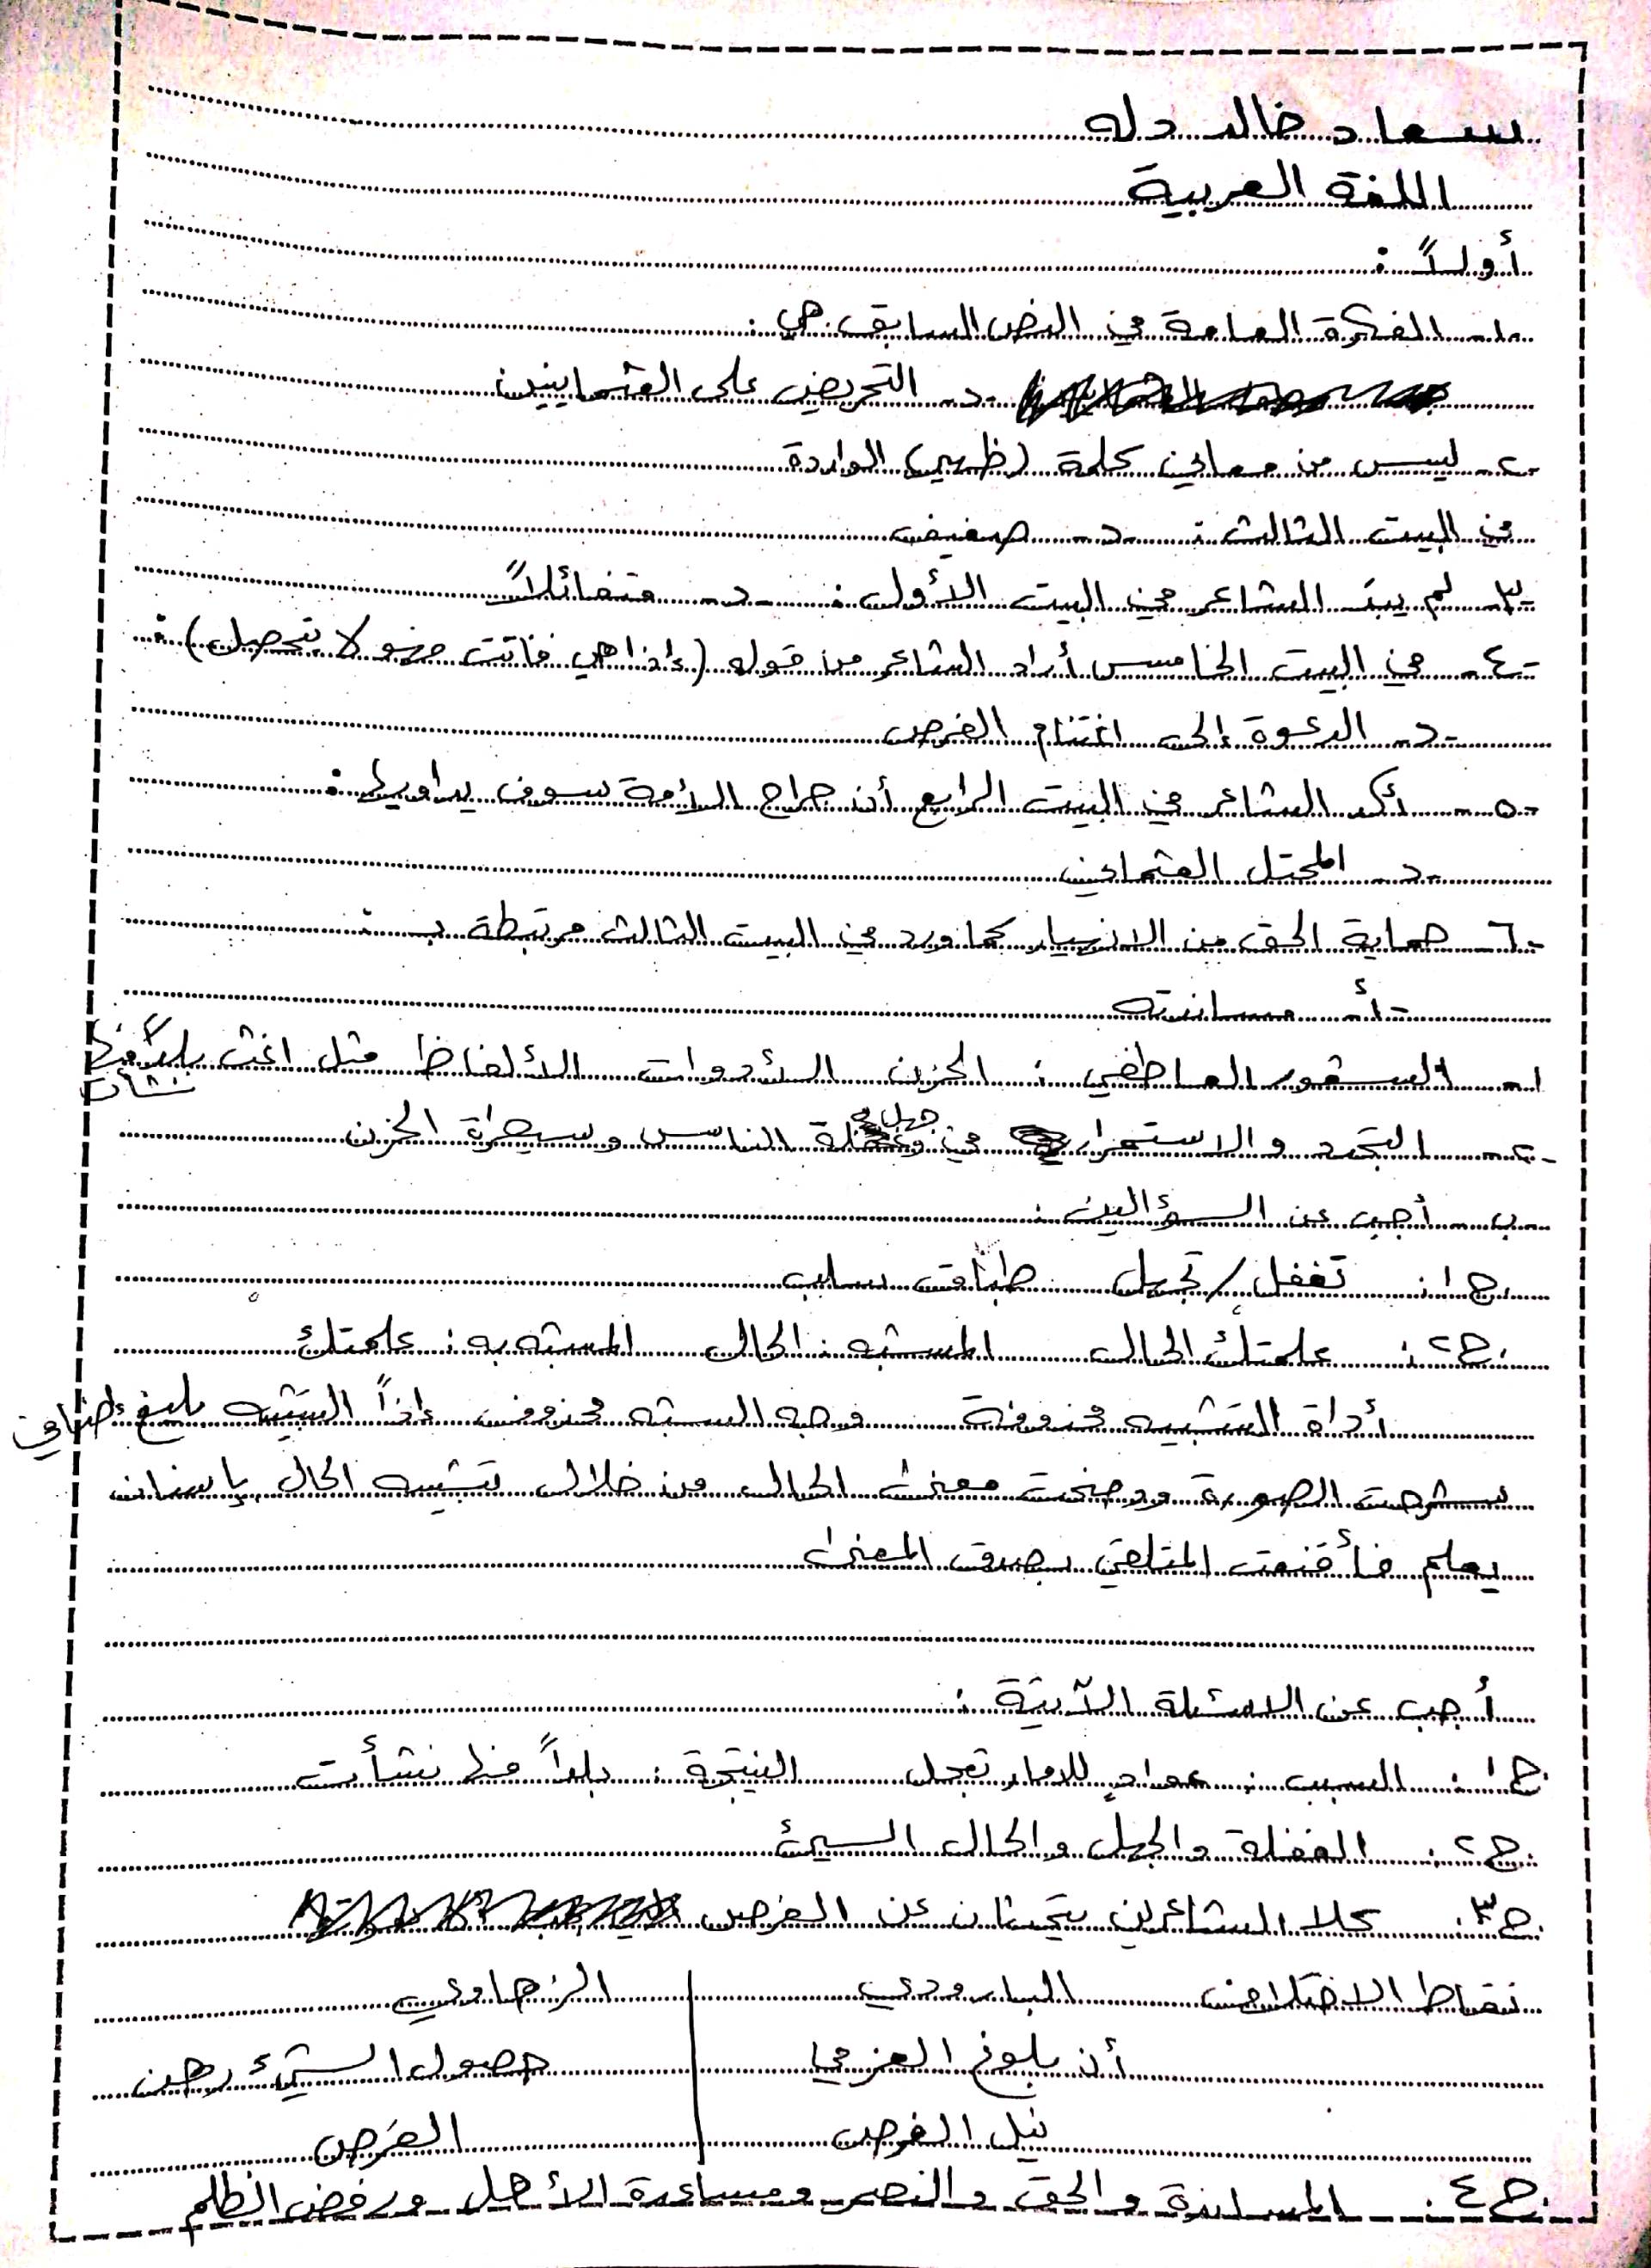 سعاد خالد دله
اللغة العربية
أولاً :
١- الفكرة العامة في النص السابق هي :
د- التحريض على العثمانيين
٢- ليس من معاني كلمة (ظهير) الواردة
في البيت الثالث : د- ضعيف
٣- لم يبد الشاعر في البيت الأول : د- متفائلاً
٤- في البيت الخامس أراد الشاعر من قوله (إذا هي فاتت فهو لا يتحصل) :
د- الدعوة إلى اغتنام الفرص
٥- أكد الشاعر في البيت الرابع أن جراح الأمة سوف يداويها :
د- المحتل العثماني
٦- حماية الحق من الانهيار كما ورد في البيت الثالث مرتبطة بـ :
أ- مساندته
١- الشعور العاطفي : الحزن الأدوات الألفاظ مثل اغث بلداً منها نشأت
٢- التجدد والاستمرار في جهل وغفلة الناس وسيطرة الحزن
ب- أجب عن السؤالين :
ج١ : تغفل / تجهل طباق سلب
ج٢ : علمتك الحال المشبه : الحال المشبه به : علمتك
أداة التشبيه محذوفة وجه الشبه محذوف إذاً التشبيه بليغ إضافي
شرحت الصورة ووضحت معنى الحال من خلال تشبيه الحال بإنسان
يعلم فأقنعت المتلقي بصدق المعنى
أجب عن الاسئلة الآتية :
ج١ : السبب : عواد للدمار تعجل النتيجة : بلداً منها نشأت
ج٢ : الغفلة والجهل والحال السيئ
ج٣ : كلا الشاعرين يتحدثان عن الفرص
نقاط الاختلاف البارودي الزهاوي
أن بلوغ العز في حصول الشيء رهن
نيل الفرص الفرص
ج٤ : المساندة والحق والنصر ومساعدة الأهل ورفض الظلم